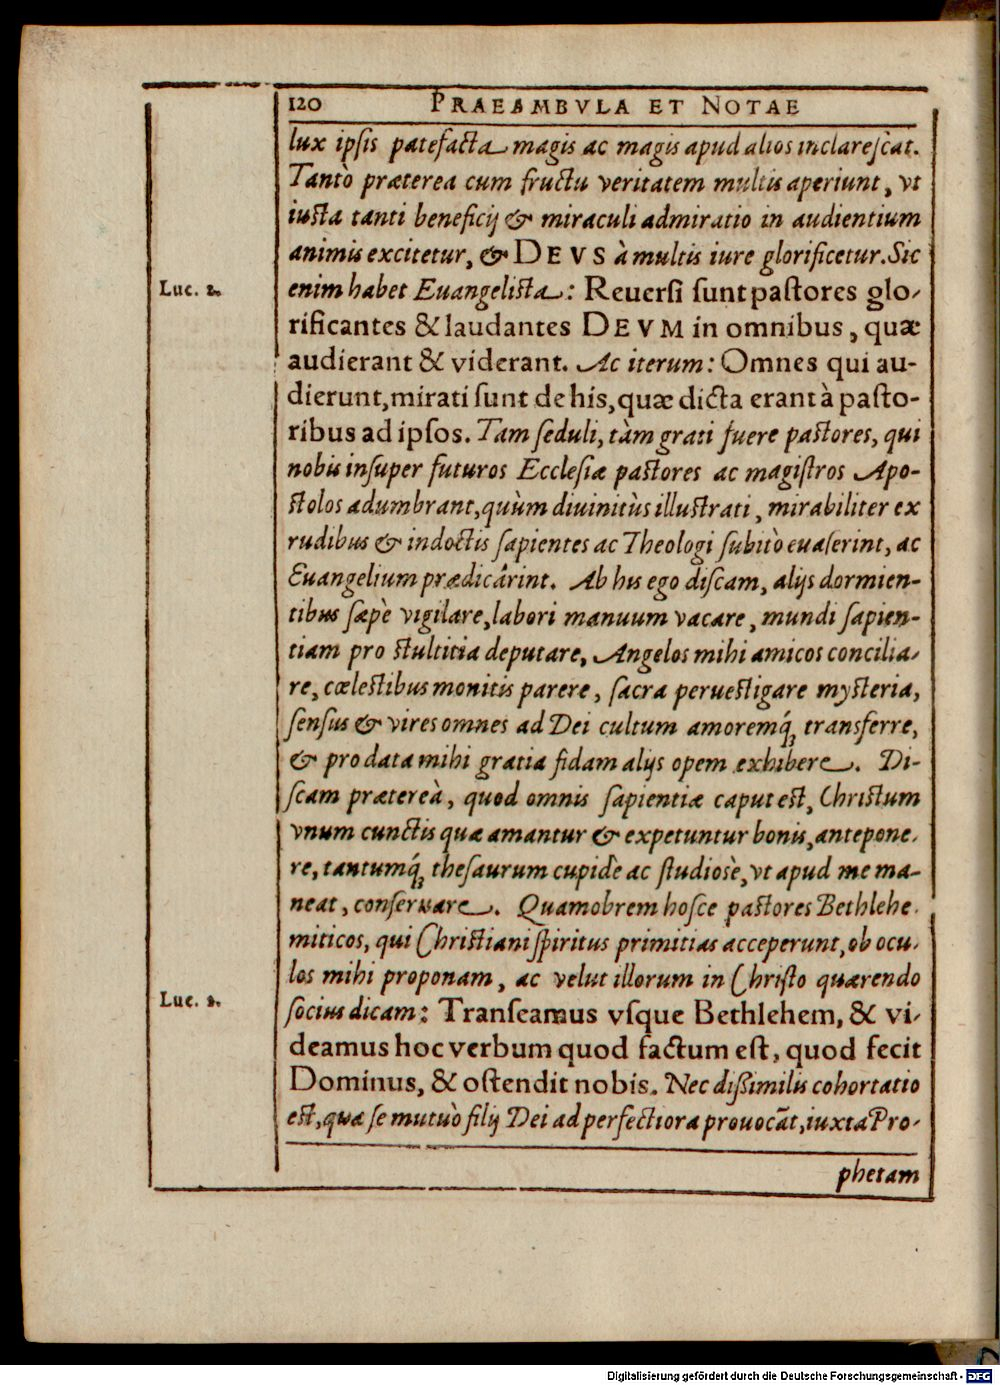 120 PRAEAMBVLA ET NOTAE
lux ipsis patefacta magis ac magis apud alios inclarescat.
Tantò præterea cum fructu veritatem multis aperiunt, vt
iusta tanti beneficij & miraculi admiratio in audientium
animis excitetur, & DEVS à multis iure glorificetur. Sic
Luc. 2.
enim habet Euangelista: Reuersi sunt pastores glo-
rificantes & laudantes DEVM in omnibus, quæ
audierant & viderant. Ac iterum: Omnes qui au-
dierunt, mirati sunt de his, quæ dicta erant à pasto-
ribus ad ipsos. Tam seduli, tàm grati fuere pastores, qui
nobis insuper futuros Ecclesiæ pastores ac magistros Apo-
stolos adumbrant, quùm diuinitùs illustrati, mirabiliter ex
rudibus & indoctis sapientes ac Theologi subitò euaserint, ac
Euangelium prædicârint. Ab his ego discam, alijs dormien-
tibus sæpè vigilare, labori manuum vacare, mundi sapien-
tiam pro stultitia deputare, Angelos mihi amicos concilia-
re, cœlestibus monitis parere, sacra peruestigare mysteria,
sensus & vires omnes ad Dei cultum amoremq́ꝫ transferre,
& pro data mihi gratia fidam alijs opem exhibere. Di-
scam prætereà, quod omnis sapientiæ caput est, Christum
vnum cunctis quæ amantur & expetuntur bonis, antepone-
re, tantumq́ꝫ thesaurum cupidè ac studiosè, vt apud me ma-
neat, conseruare. Quamobrem hosce pastores Bethlehe-
miticos, qui Christiani spiritus primitias acceperunt, ob ocu-
los mihi proponam, ac velut illorum in Christo quærendo
Luc. 2.
socius dicam: Transeamus vsque Bethlehem, & vi-
deamus hoc verbum quod factum est, quod fecit
Dominus, & ostendit nobis. Nec dißimilis cohortatio
est, qua se mutuò filij Dei ad perfectiora prouocãt, iuxta Pro-
phetam
Digitalisierung gefördert durch die Deutsche Forschungsgemeinschaft - DFG